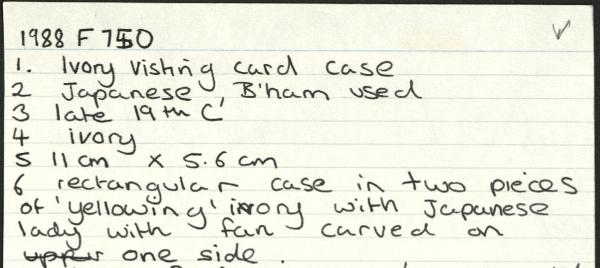 1988 F 750
1. Ivory visiting card case
2 Japanese, B'ham used
3 late 19th C
4 ivory
5 11 cm x 5.6 cm
6 rectangular case in two pieces
of 'yellowing' ivory with Japanese
lady with fan carved on
upper one side.